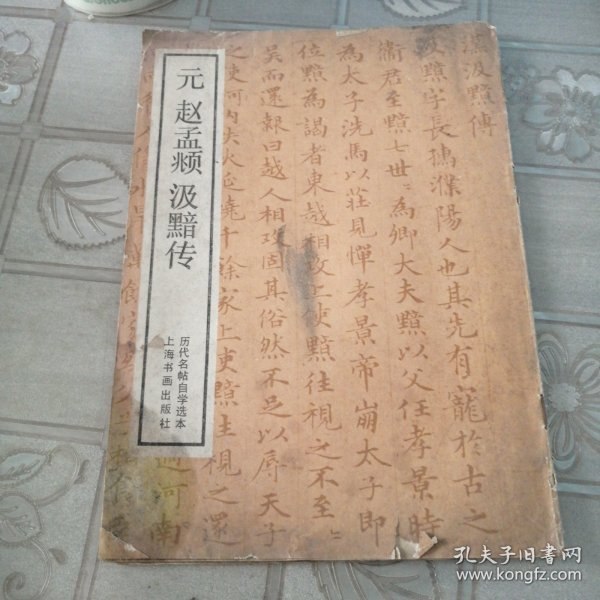 元 赵孟頫 汲黯传
历代名帖自学选本
上海书画出版社
漢汲黯傳
汲黯字長孺濮陽人也其先有寵於古之
衛君至黯七世〻為卿大夫黯以父任孝景時
為太子洗馬以莊見憚孝景帝崩太子即
位黯為謁者東越相攻上使黯往視之不至〻
吴而還報曰越人相攻固其俗然不足以辱天子
之使河内失火延燒千餘家上使黯往視之還
過河南
孔夫子旧书网
www.kongfz.com